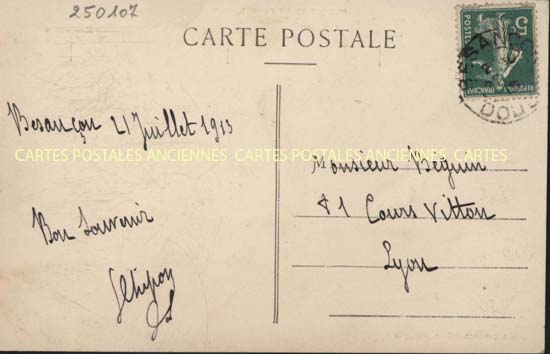 250107
CARTE POSTALE
5
POSTES
FRANÇAISE
BESANÇON
DOUBS
Besançon 21 Juillet 1913
CARTES POSTALES ANCIENNES CARTES POSTALES ANCIENNES CARTES
Monsieur Béguin
81 Cours Vitton
Lyon
Bon Souvenir